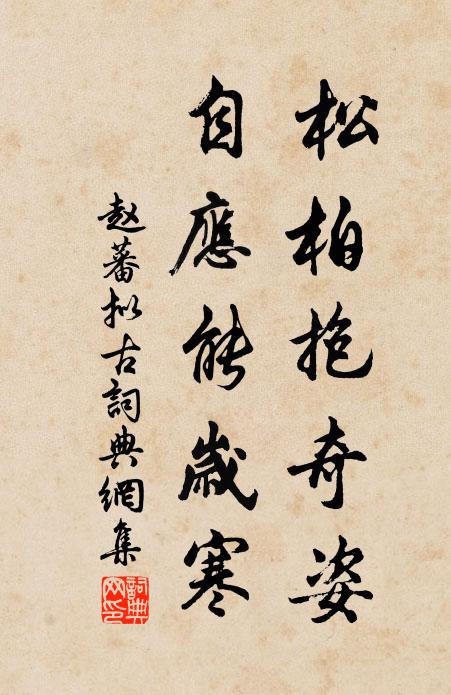 松柏抱奇姿
自應能歲寒
赵蕃拟古詞典網集
詞典網印